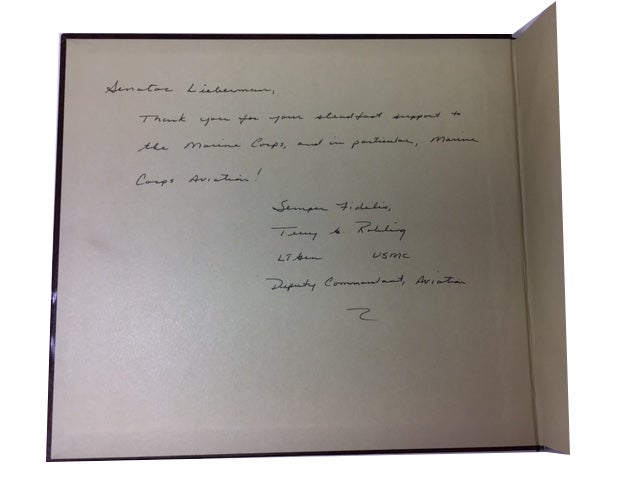 Senator Lieberman,
Thank you for your steadfast support to
the Marine Corps, and in particular, Marine
Corps Aviation!
Semper Fidelis,
Terry G. Robling
LtGen USMC
Deputy Commandant, Aviation